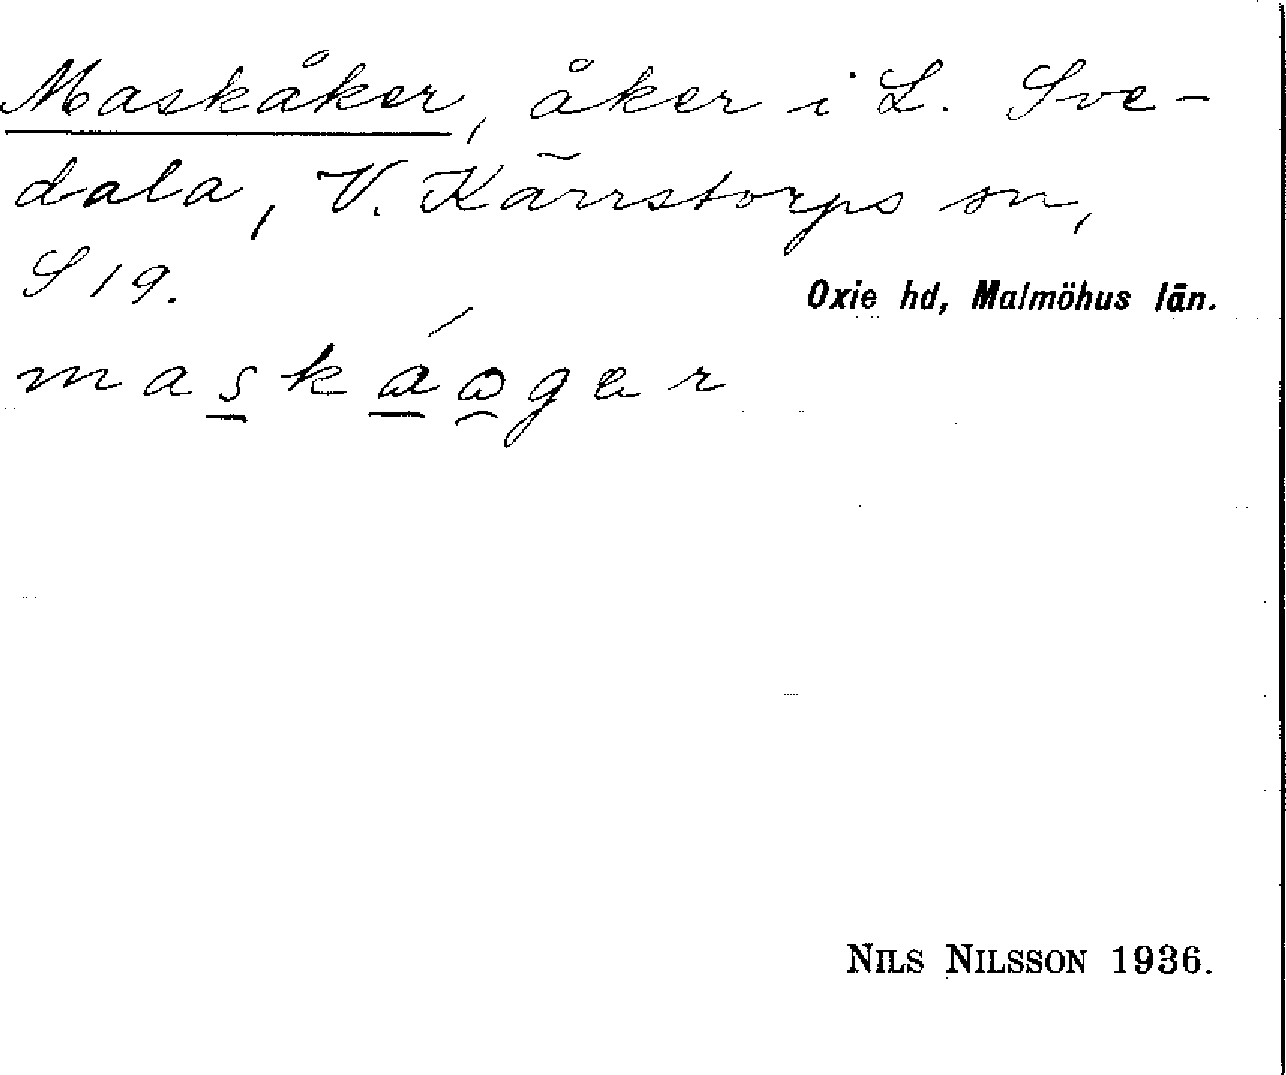 Maskåker, åker i L. Sve-
dala, V. Kärrstorps sn,
S 19.
Oxie hd, Malmöhus län.
maskáoger
NILS NILSSON 1936.